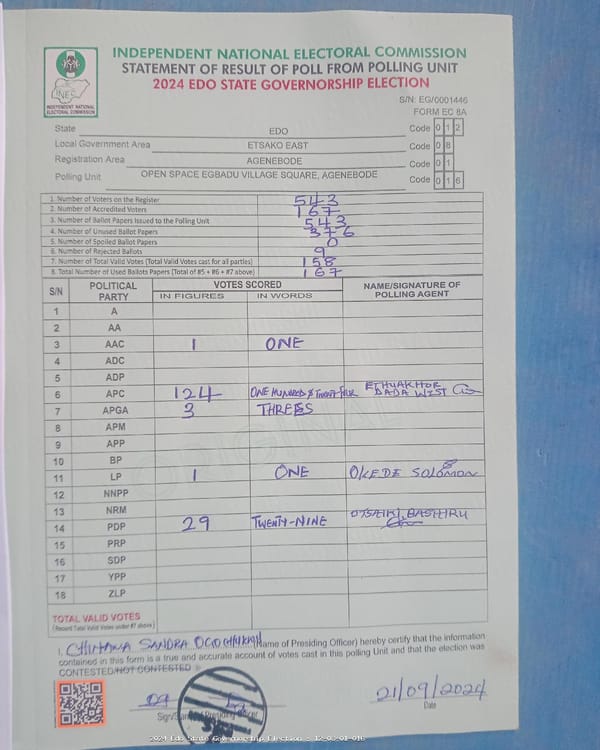 INDEPENDENT NATIONAL ELECTORAL COMMISSION
STATEMENT OF RESULT OF POLL FROM POLLING UNIT
2024 EDO STATE GOVERNORSHIP ELECTION
INEC
INDEPENDENT NATIONAL
ELECTORAL COMMISSION
S/N: EG/0001446
FORM EC 8A
State EDO Code 0 1 2
Local Government Area ETSAKO EAST Code 0 8
Registration Area AGENEBODE Code 0 1
Polling Unit OPEN SPACE EGBADU VILLAGE SQUARE, AGENEBODE Code 0 1 6
1. Number of Voters on the Register 543
2. Number of Accredited Voters 167
3. Number of Ballot Papers Issued to the Polling Unit 543
4. Number of Unused Ballot Papers 376
5. Number of Spoiled Ballot Papers 0
6. Number of Rejected Ballots 9
7. Number of Total Valid Votes (Total Valid Votes cast for all parties) 158
8. Total Number of Used Ballots Papers (Total of #5 + #6 + #7 above) 167
S/N POLITICAL PARTY VOTES SCORED NAME/SIGNATURE OF POLLING AGENT
IN FIGURES IN WORDS
1 A
2 AA
3 AAC 1 ONE
4 ADC
5 ADP
6 APC 124 ONE HUNDRED & DADA WEST
7 APGA 3 THREE
8 APM
9 APP
10 BP
11 LP 1 ONE OKEDE SOLOMON
12 NNPP
13 NRM
14 PDP 29 TWENTY-NINE BASHIRU
15 PRP
16 SDP
17 YPP
18 ZLP
TOTAL VALID VOTES
(Record Total Valid Votes under #7 above)
I, SANDRA (Name of Presiding Officer) hereby certify that the information
contained in this form is a true and accurate account of votes cast in this polling Unit and that the election was
CONTESTED/NOT CONTESTED
21/09/2024
Date
2024 Edo State Governorship Election - 12-08-01-016